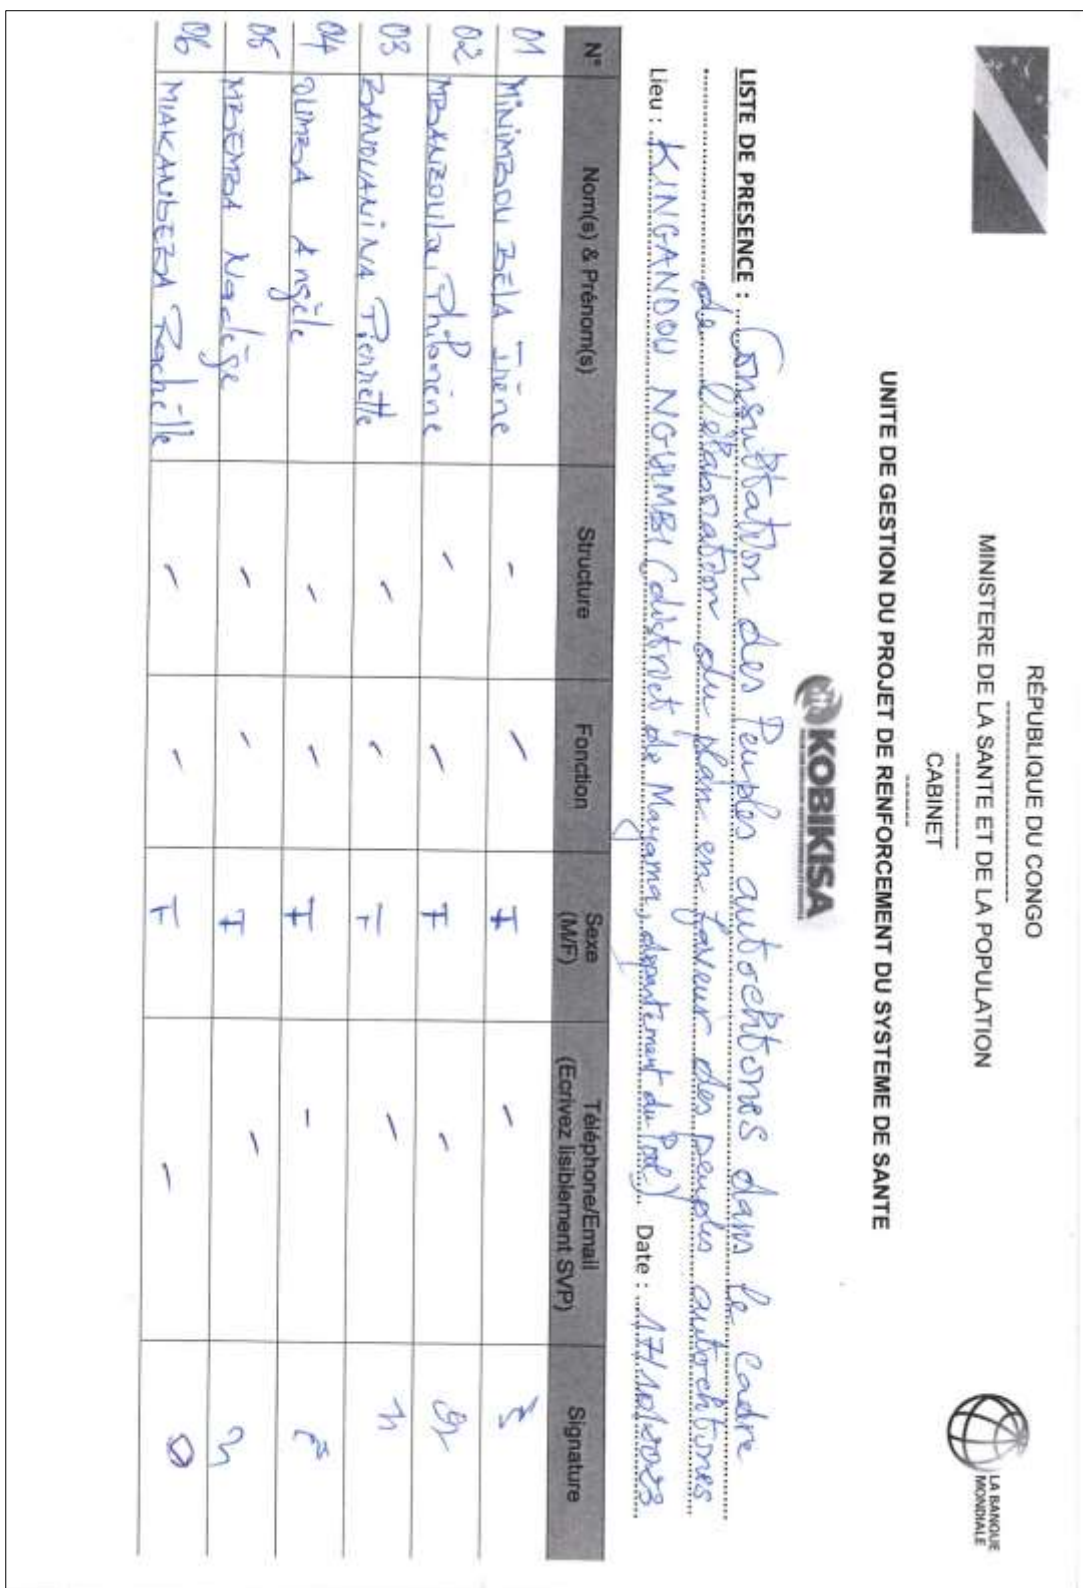 RÉPUBLIQUE DU CONGO
MINISTERE DE LA SANTE ET DE LA POPULATION
CABINET
UNITE DE GESTION DU PROJET DE RENFORCEMENT DU SYSTEME DE SANTE
LA BANQUE MONDIALE
KOBIKISA
LISTE DE PRESENCE : Consultation des Peuples autochtones dans le cadre
de l'élaboration du plan en faveur des peuples autochtones
Lieu : KINGANDOU NGUIMBI (district de Mayama, département du Pool) Date : 17/10/2023
N° Nom(s) & Prénom(s) Structure Fonction Sexe (M/F) Téléphone/Email (Ecrivez lisiblement SVP) Signature
01 MiNiMBOU BELA Irène - - F -
02 MBANZOULOU Philomène - - F -
03 BANOUANINA Pierrette - - F -
04 OLIMBA Angèle - - F -
05 MBEMBA Nadège - - F -
06 MIAKANBEZA Rachelle - - F -